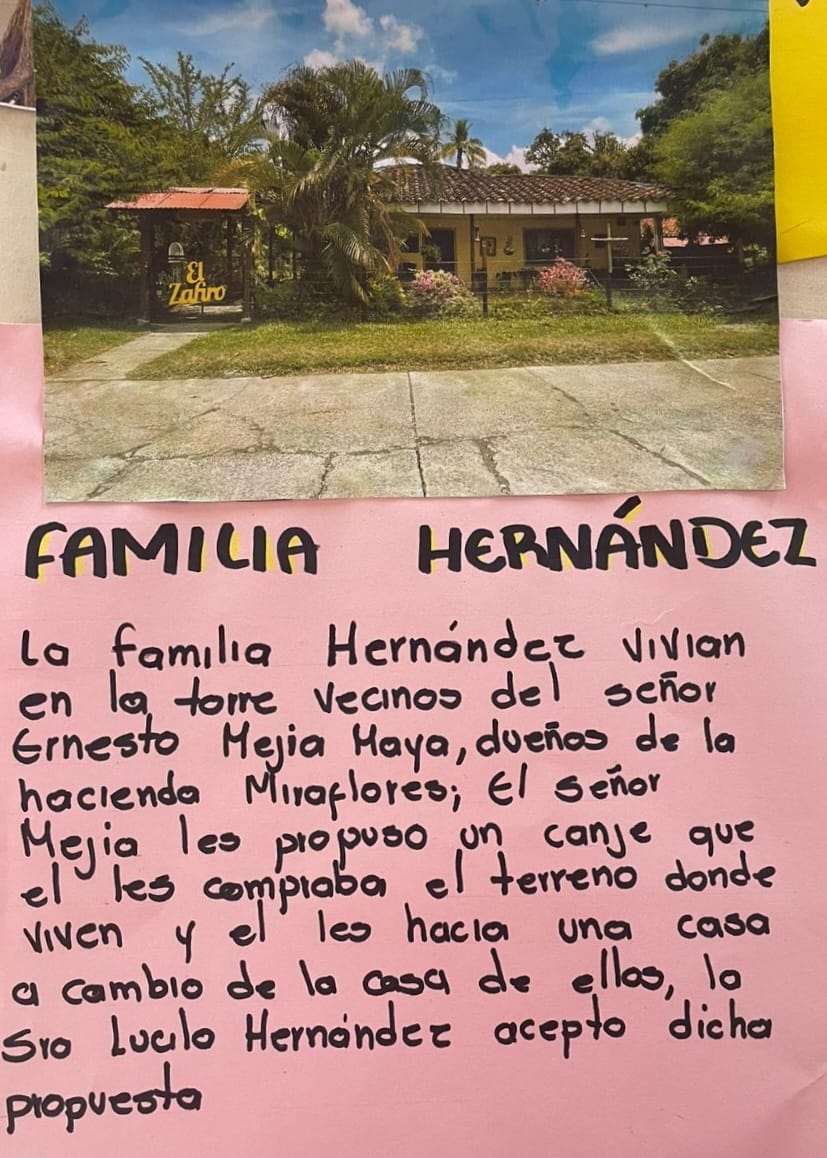 El
Zafiro
FAMILIA HERNÁNDEZ
La familia Hernández vivian
en la torre vecinos del señor
Ernesto Mejia Maya, dueños de la
hacienda Miraflores; El señor
Mejia les propuso un canje que
el les compraba el terreno donde
viven y el les hacia una casa
a cambio de la casa de ellos, la
Sra Lucila Hernández acepto dicha
propuesta